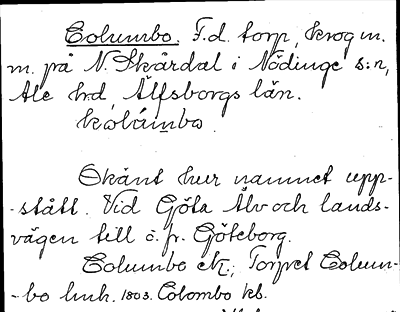 Columbo. F.d. torp, krog m.
m. på N. Skårdal i Nödinge s:n,
Ale hrd, Älfsborgs län.
kolúmbo
Okänt hur namnet upp-
-stått. Vid Göta Älv och lands-
vägen till o. fr. Göteborg.
Columbo
Torpet Colum-
-bo hmk. 1803. Colombo kb.